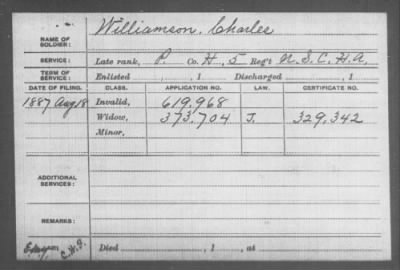 Williamson, Charles
NAME OF SOLDIER:
SERVICE: Late rank, P. Co. H, 5 Reg't U.S.C.H.A.
TERM OF SERVICE: Enlisted , 1 Discharged , 1
DATE OF FILING. CLASS. APPLICATION NO. LAW. CERTIFICATE NO.
1887 Aug 18 Invalid, 619,968
Widow, 373,704 J. 329,342
Minor,
ADDITIONAL SERVICES:
REMARKS:
Died , 1 , at